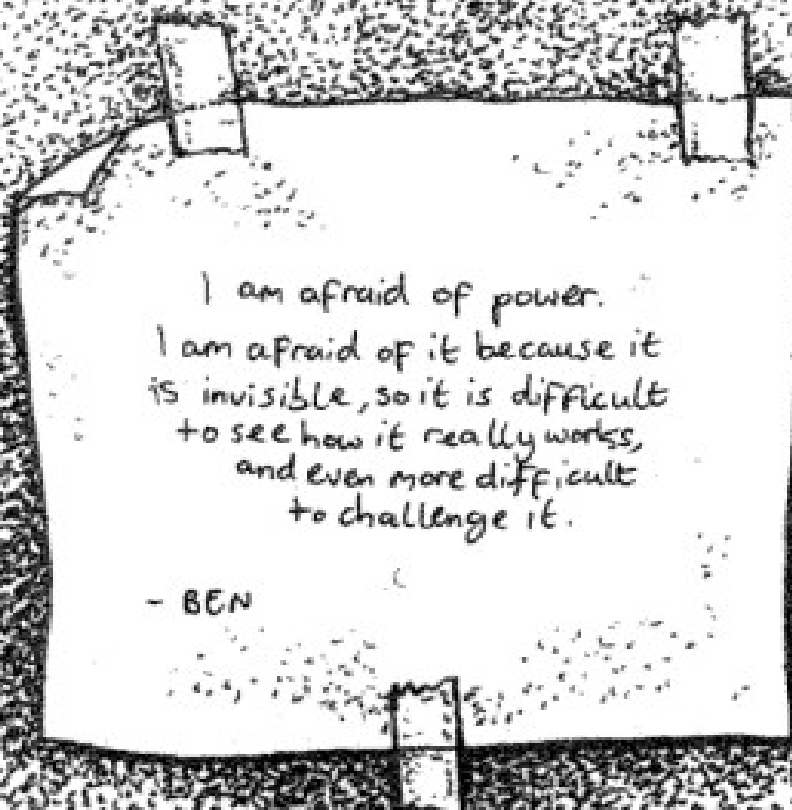 I am afraid of power.
I am afraid of it because it
is invisible, so it is difficult
to see how it really works,
and even more difficult
to challenge it.
- BEN